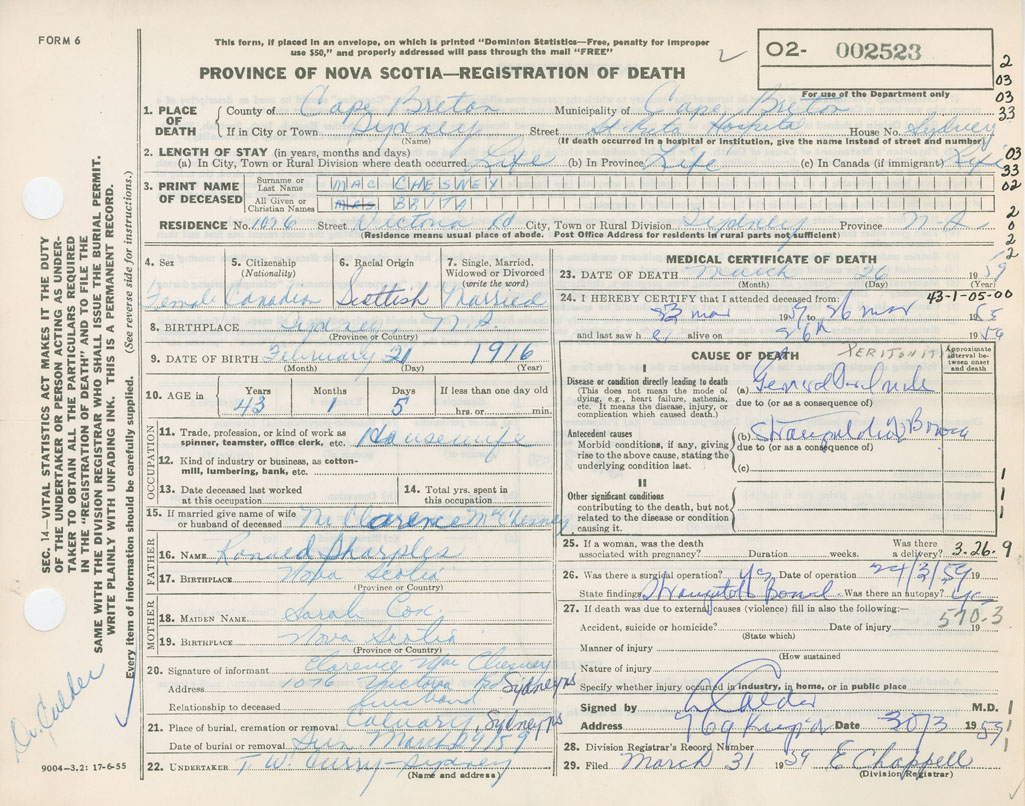 FORM 6
This form, if placed in an envelope, on which is printed "Dominion Statistics—Free, penalty for improper
use $50," and properly addressed will pass through the mail "FREE"
PROVINCE OF NOVA SCOTIA—REGISTRATION OF DEATH
O2- 002523
For use of the Department only
2
03
03
33
03
33
02
2
0
2
2
1. PLACE OF DEATH County of Cape Breton Municipality of Cape Breton
If in City or Town Sydney Street St. Rita Hospital House No. Sydney
(Name) (If death occurred in a hospital or institution, give the name instead of street and number)
2. LENGTH OF STAY (in years, months and days)
(a) In City, Town or Rural Division where death occurred Life (b) In Province Life (c) In Canada (if immigrant) Life
3. PRINT NAME OF DECEASED
Surname or Last Name MAC CHESNEY
All Given or Christian Names BRITA
RESIDENCE No. 1076 Street Victoria Rd City, Town or Rural Division Sydney Province N.S.
(Residence means usual place of abode. Post Office Address for residents in rural parts not sufficient)
4. Sex Female
5. Citizenship (Nationality) Canadian
6. Racial Origin Scottish
7. Single, Married, Widowed or Divorced (write the word) Married
8. BIRTHPLACE Sydney, N.S.
(Province or Country)
9. DATE OF BIRTH February 21 1916
(Month) (Day) (Year)
10. AGE in Years 43 Months 1 Days 5 If less than one day old
hrs. or min.
OCCUPATION
11. Trade, profession, or kind of work as spinner, teamster, office clerk, etc. Housewife
12. Kind of industry or business, as cotton-mill, lumbering, bank, etc.
13. Date deceased last worked at this occupation
14. Total yrs. spent in this occupation
15. If married give name of wife or husband of deceased Mr Clarence MacChesney
FATHER
16. NAME Ronald Sharples
17. BIRTHPLACE Nova Scotia
(Province or Country)
MOTHER
18. MAIDEN NAME Sarah Cox
19. BIRTHPLACE Nova Scotia
(Province or Country)
20. Signature of informant Clarence Mac Chesney
Address 1076 Victoria Rd Sydney ns
Relationship to deceased husband
21. Place of burial, cremation or removal Calvary, Sydney ns
Date of burial or removal Sun March 29/59
22. UNDERTAKER T. W. Curry - Sydney
(Name and address)
MEDICAL CERTIFICATE OF DEATH
23. DATE OF DEATH March 26 1959
(Month) (Day) (Year)
43-1-05-00
24. I HEREBY CERTIFY that I attended deceased from:
23 mar 1959 to 26 mar 1959
and last saw her alive on 26th 1959
CAUSE OF DEATH PERITONITIS
Approximate interval between onset and death
I
Disease or condition directly leading to death
(This does not mean the mode of dying, e.g., heart failure, asthenia, etc. It means the disease, injury, or complication which caused death.)
(a) General
due to (or as a consequence of)
Antecedent causes
Morbid conditions, if any, giving rise to the above cause, stating the underlying condition last.
(b) Strangulation Bowel
due to (or as a consequence of)
(c)
II
Other significant conditions
contributing to the death, but not related to the disease or condition causing it.
1
1
1
25. If a woman, was the death associated with pregnancy? Duration weeks. Was there a delivery? 3.26.9
26. Was there a surgical operation? yes Date of operation 24/3/59 19
State findings Bowel Was there an autopsy? yes
27. If death was due to external causes (violence) fill in also the following:—
570-3
Accident, suicide or homicide? Date of injury 19
(State which)
Manner of injury
(How sustained
Nature of injury
Specify whether injury occurred in industry, in home, or in public place
Signed by Calder M.D.
Address 769 Date 30/3 1959
1
1
1
28. Division Registrar's Record Number
29. Filed March 31 1959 E Chappell
(Division Registrar)
SEC. 14—VITAL STATISTICS ACT MAKES IT THE DUTY
OF THE UNDERTAKER OR PERSON ACTING AS UNDER-
TAKER TO OBTAIN ALL THE PARTICULARS REQUIRED
IN THE "REGISTRATION OF DEATH" AND TO FILE THE
SAME WITH THE DIVISION REGISTRAR WHO SHALL ISSUE THE BURIAL PERMIT.
WRITE PLAINLY WITH UNFADING INK. THIS IS A PERMANENT RECORD.
Every item of information should be carefully supplied. (See reverse side for instructions.)
Dr. Calder
9004—3.2: 17-6-55